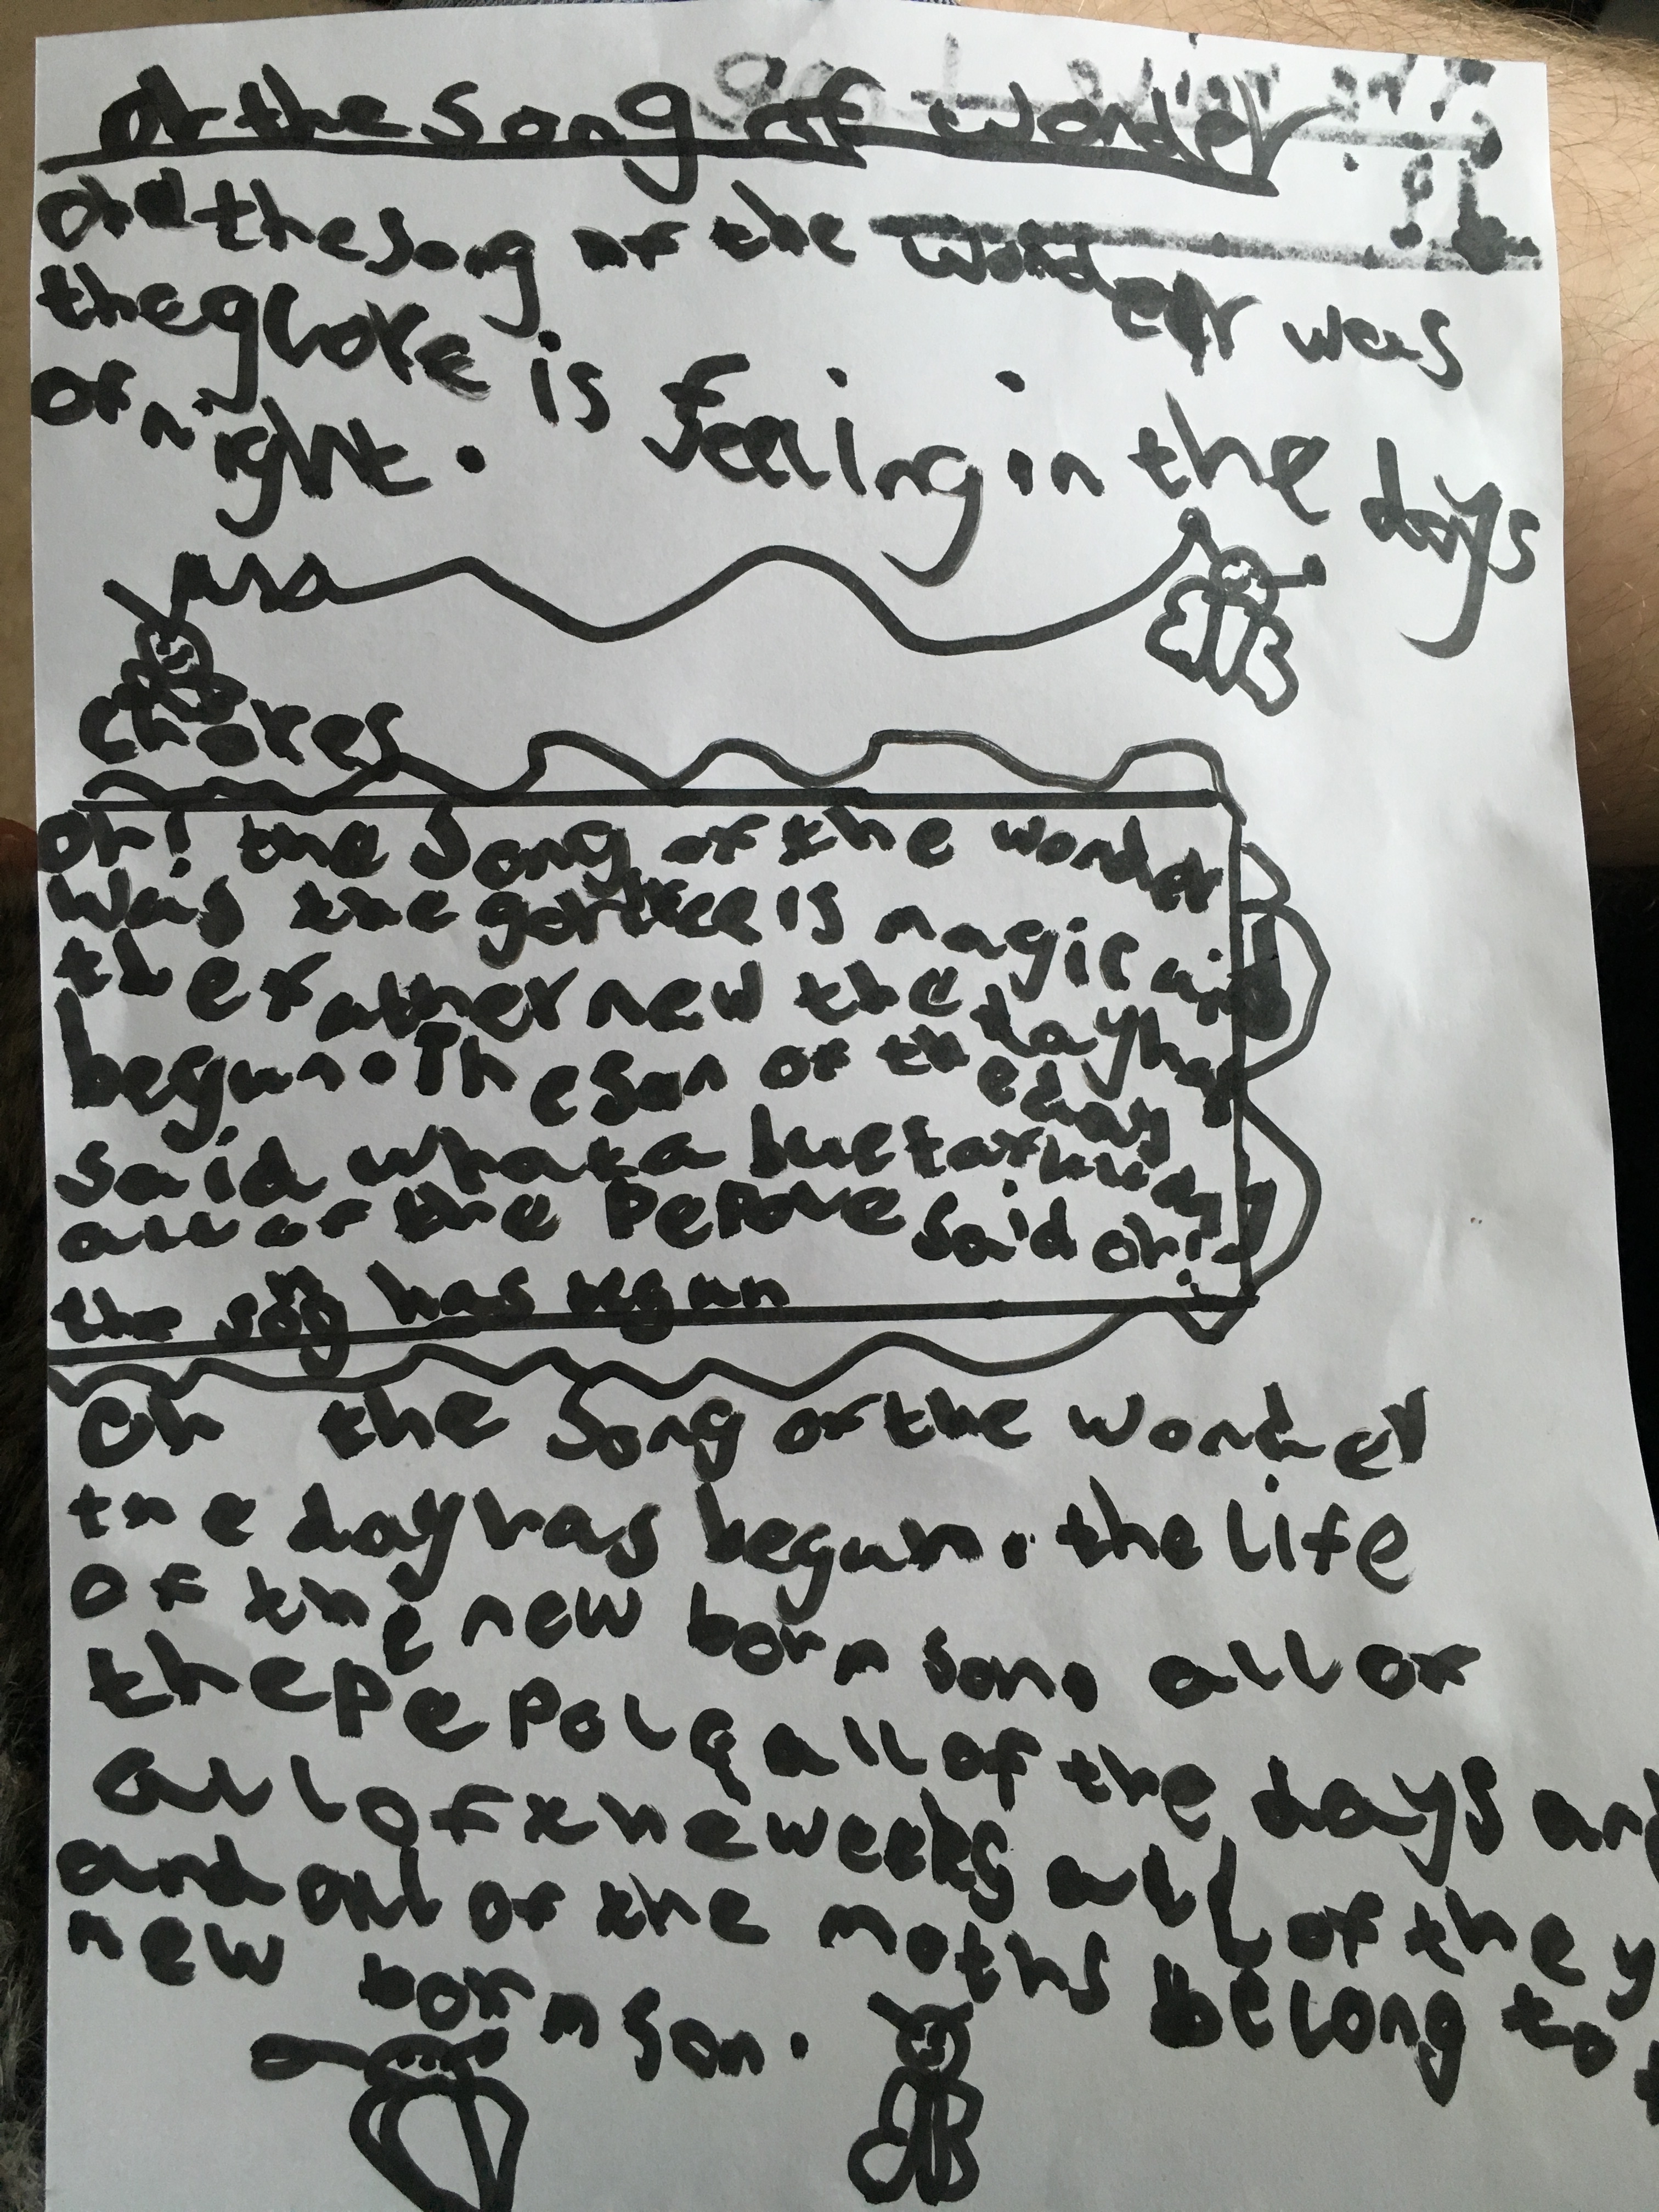 oh the song of wonder
oh the song of the wonder was
the glore is feeling in the days
of night.
chores
oh! the song of the wonder
was the is magic
the rather new the day has
begun. The son of the day
said what a
all of the pepole said oh!
the song has begun
oh the song of the wonder
the day has begun. the life
of the new born son. all of
the pepole all of the days and
all of the weeks all of the y
and all of the moths belong to t
new born son.